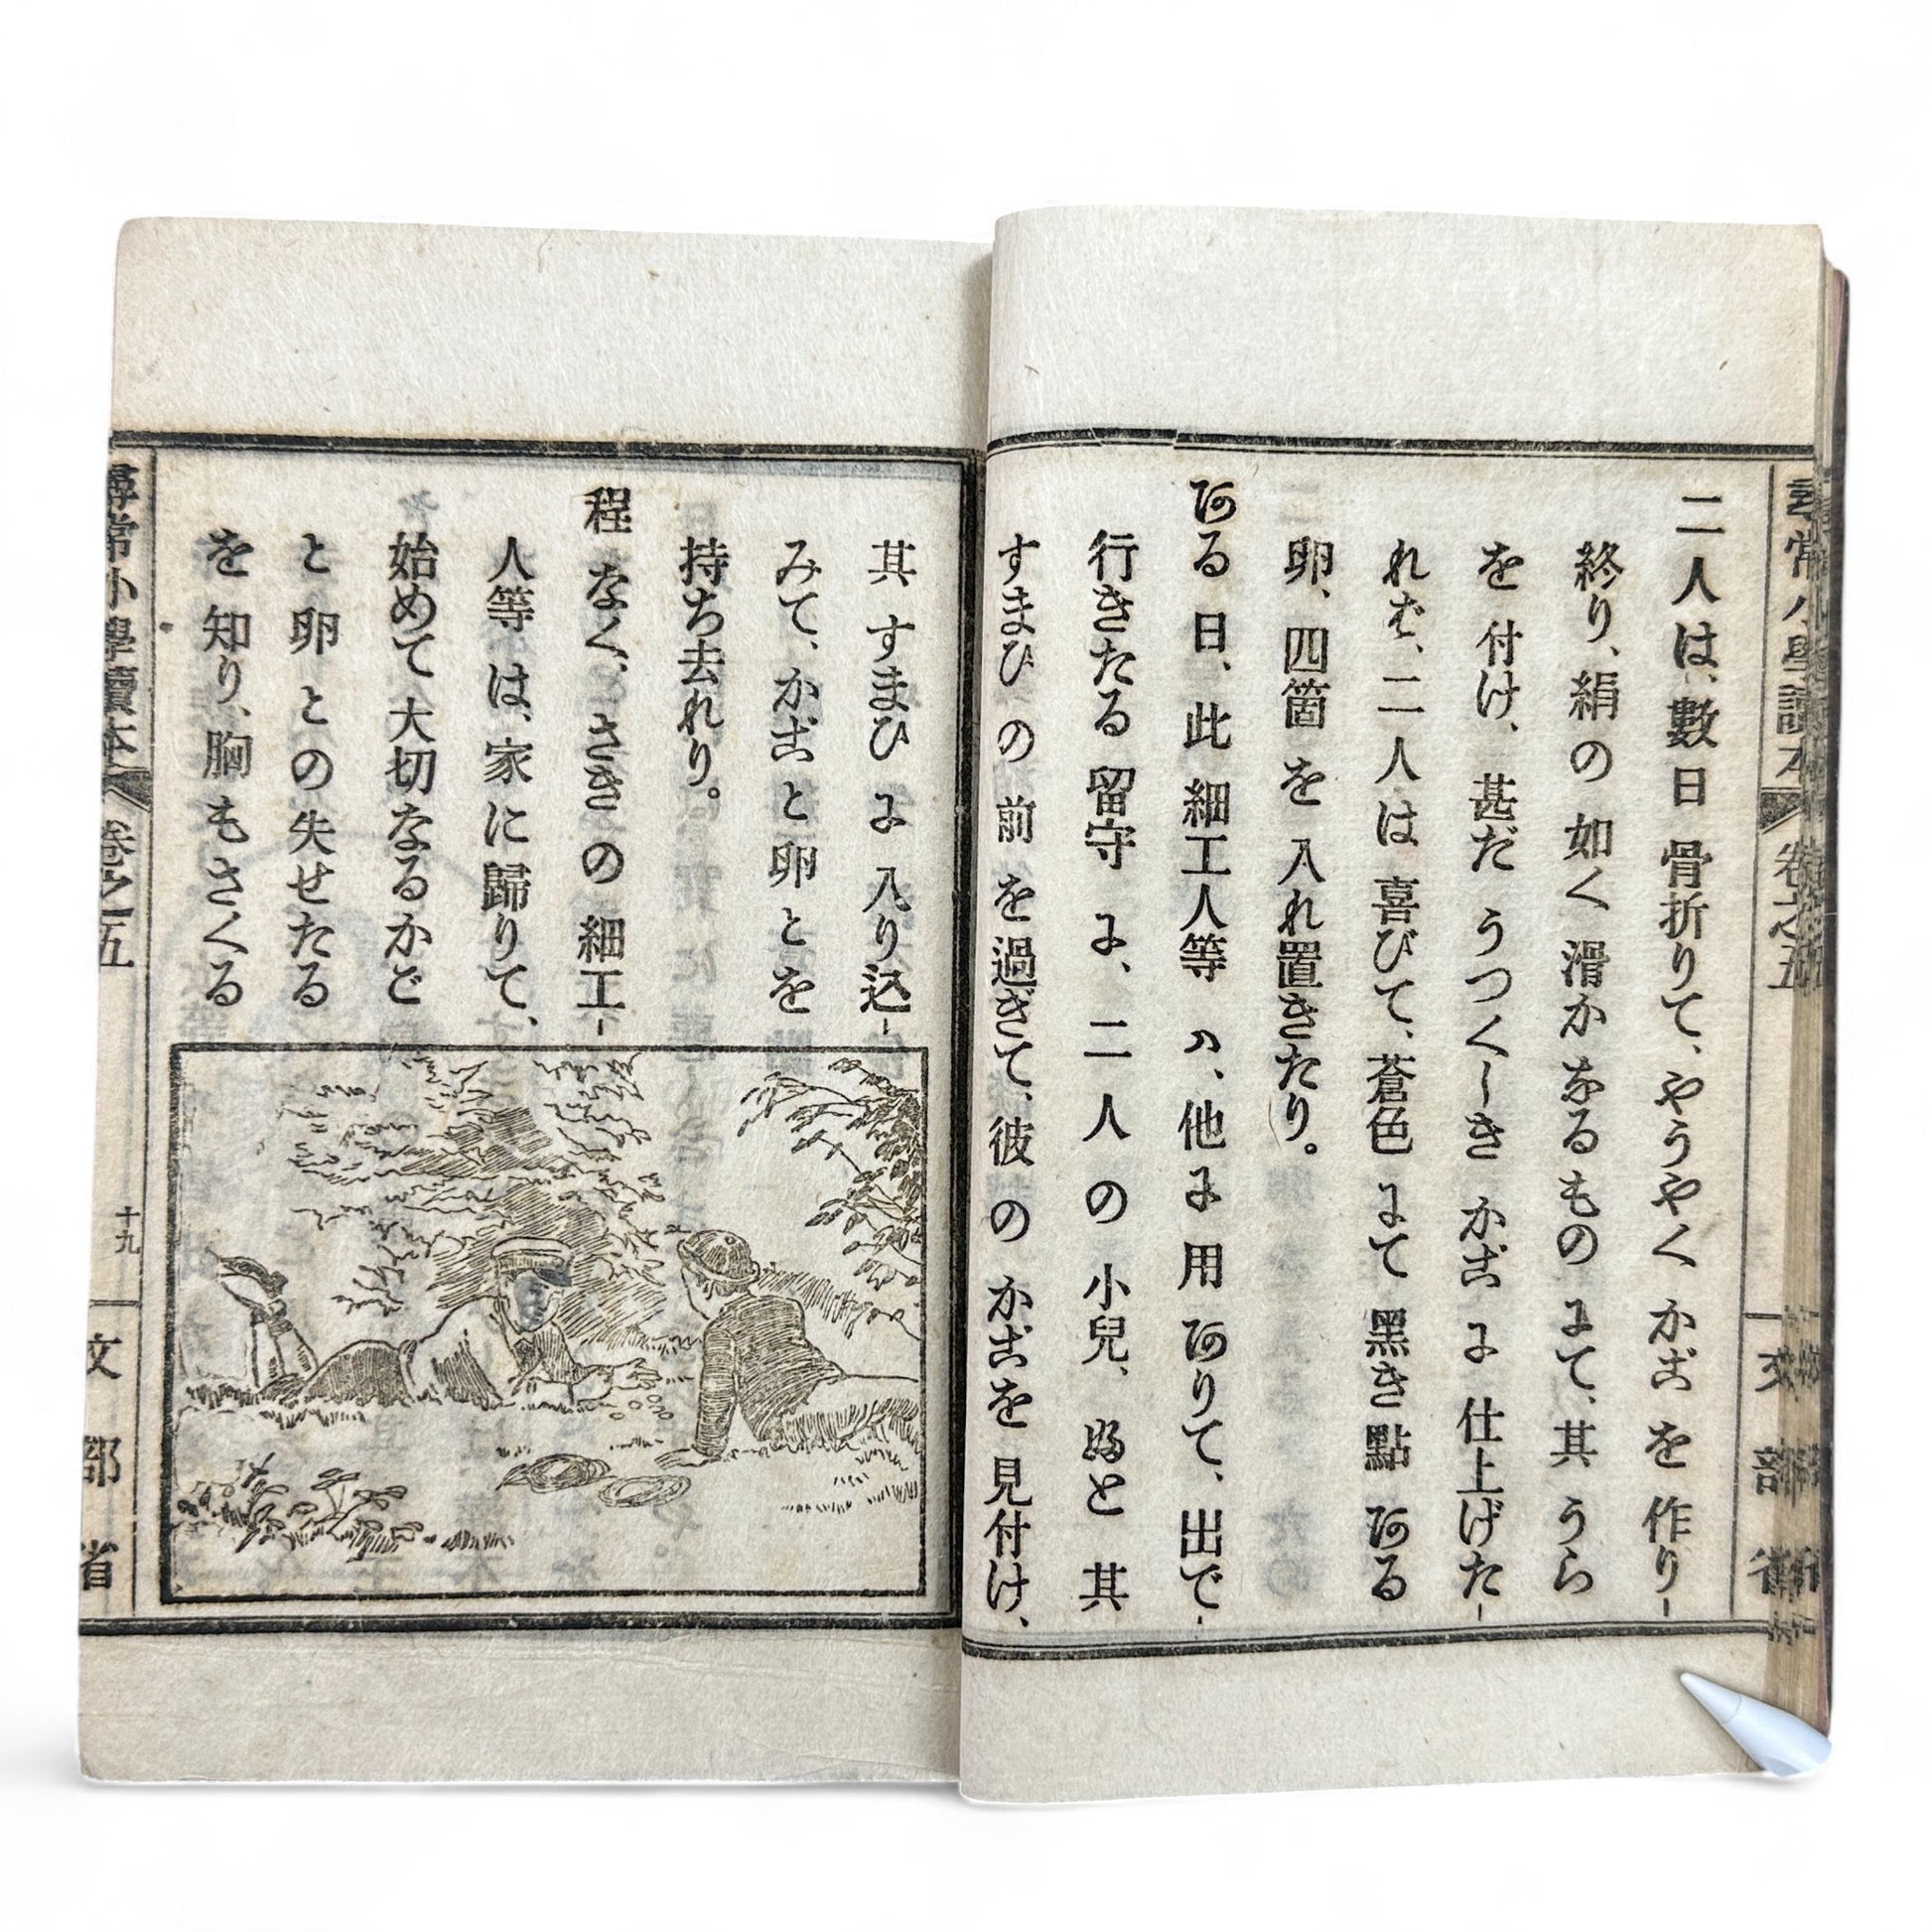 尋常小學讀本 卷之五 文部省
二人は、數日骨折りて、やうやくかごを作り-
終り、絹の如く滑かなるものにて、其うら
を付け、甚だうつくしきかごに仕上げた-
れば、二人は喜びて、蒼色にて黑き點ある
卵、四箇を入れ置きたり。
ある日、此細工人等ハ、他に用ありて、出で-
行きたる留守に、二人の小兒、ふと其
すまひの前を過ぎて、彼のかごを見付け、
其すまひに入り込-
みて、かごと卵とを
持ち去れり。
程なく、さきの細工-
人等は、家に歸りて、
始めて大切なるかご
と卵との失せたる
を知り、胸もさくる
尋常小學讀本 卷之五 十九 文部省